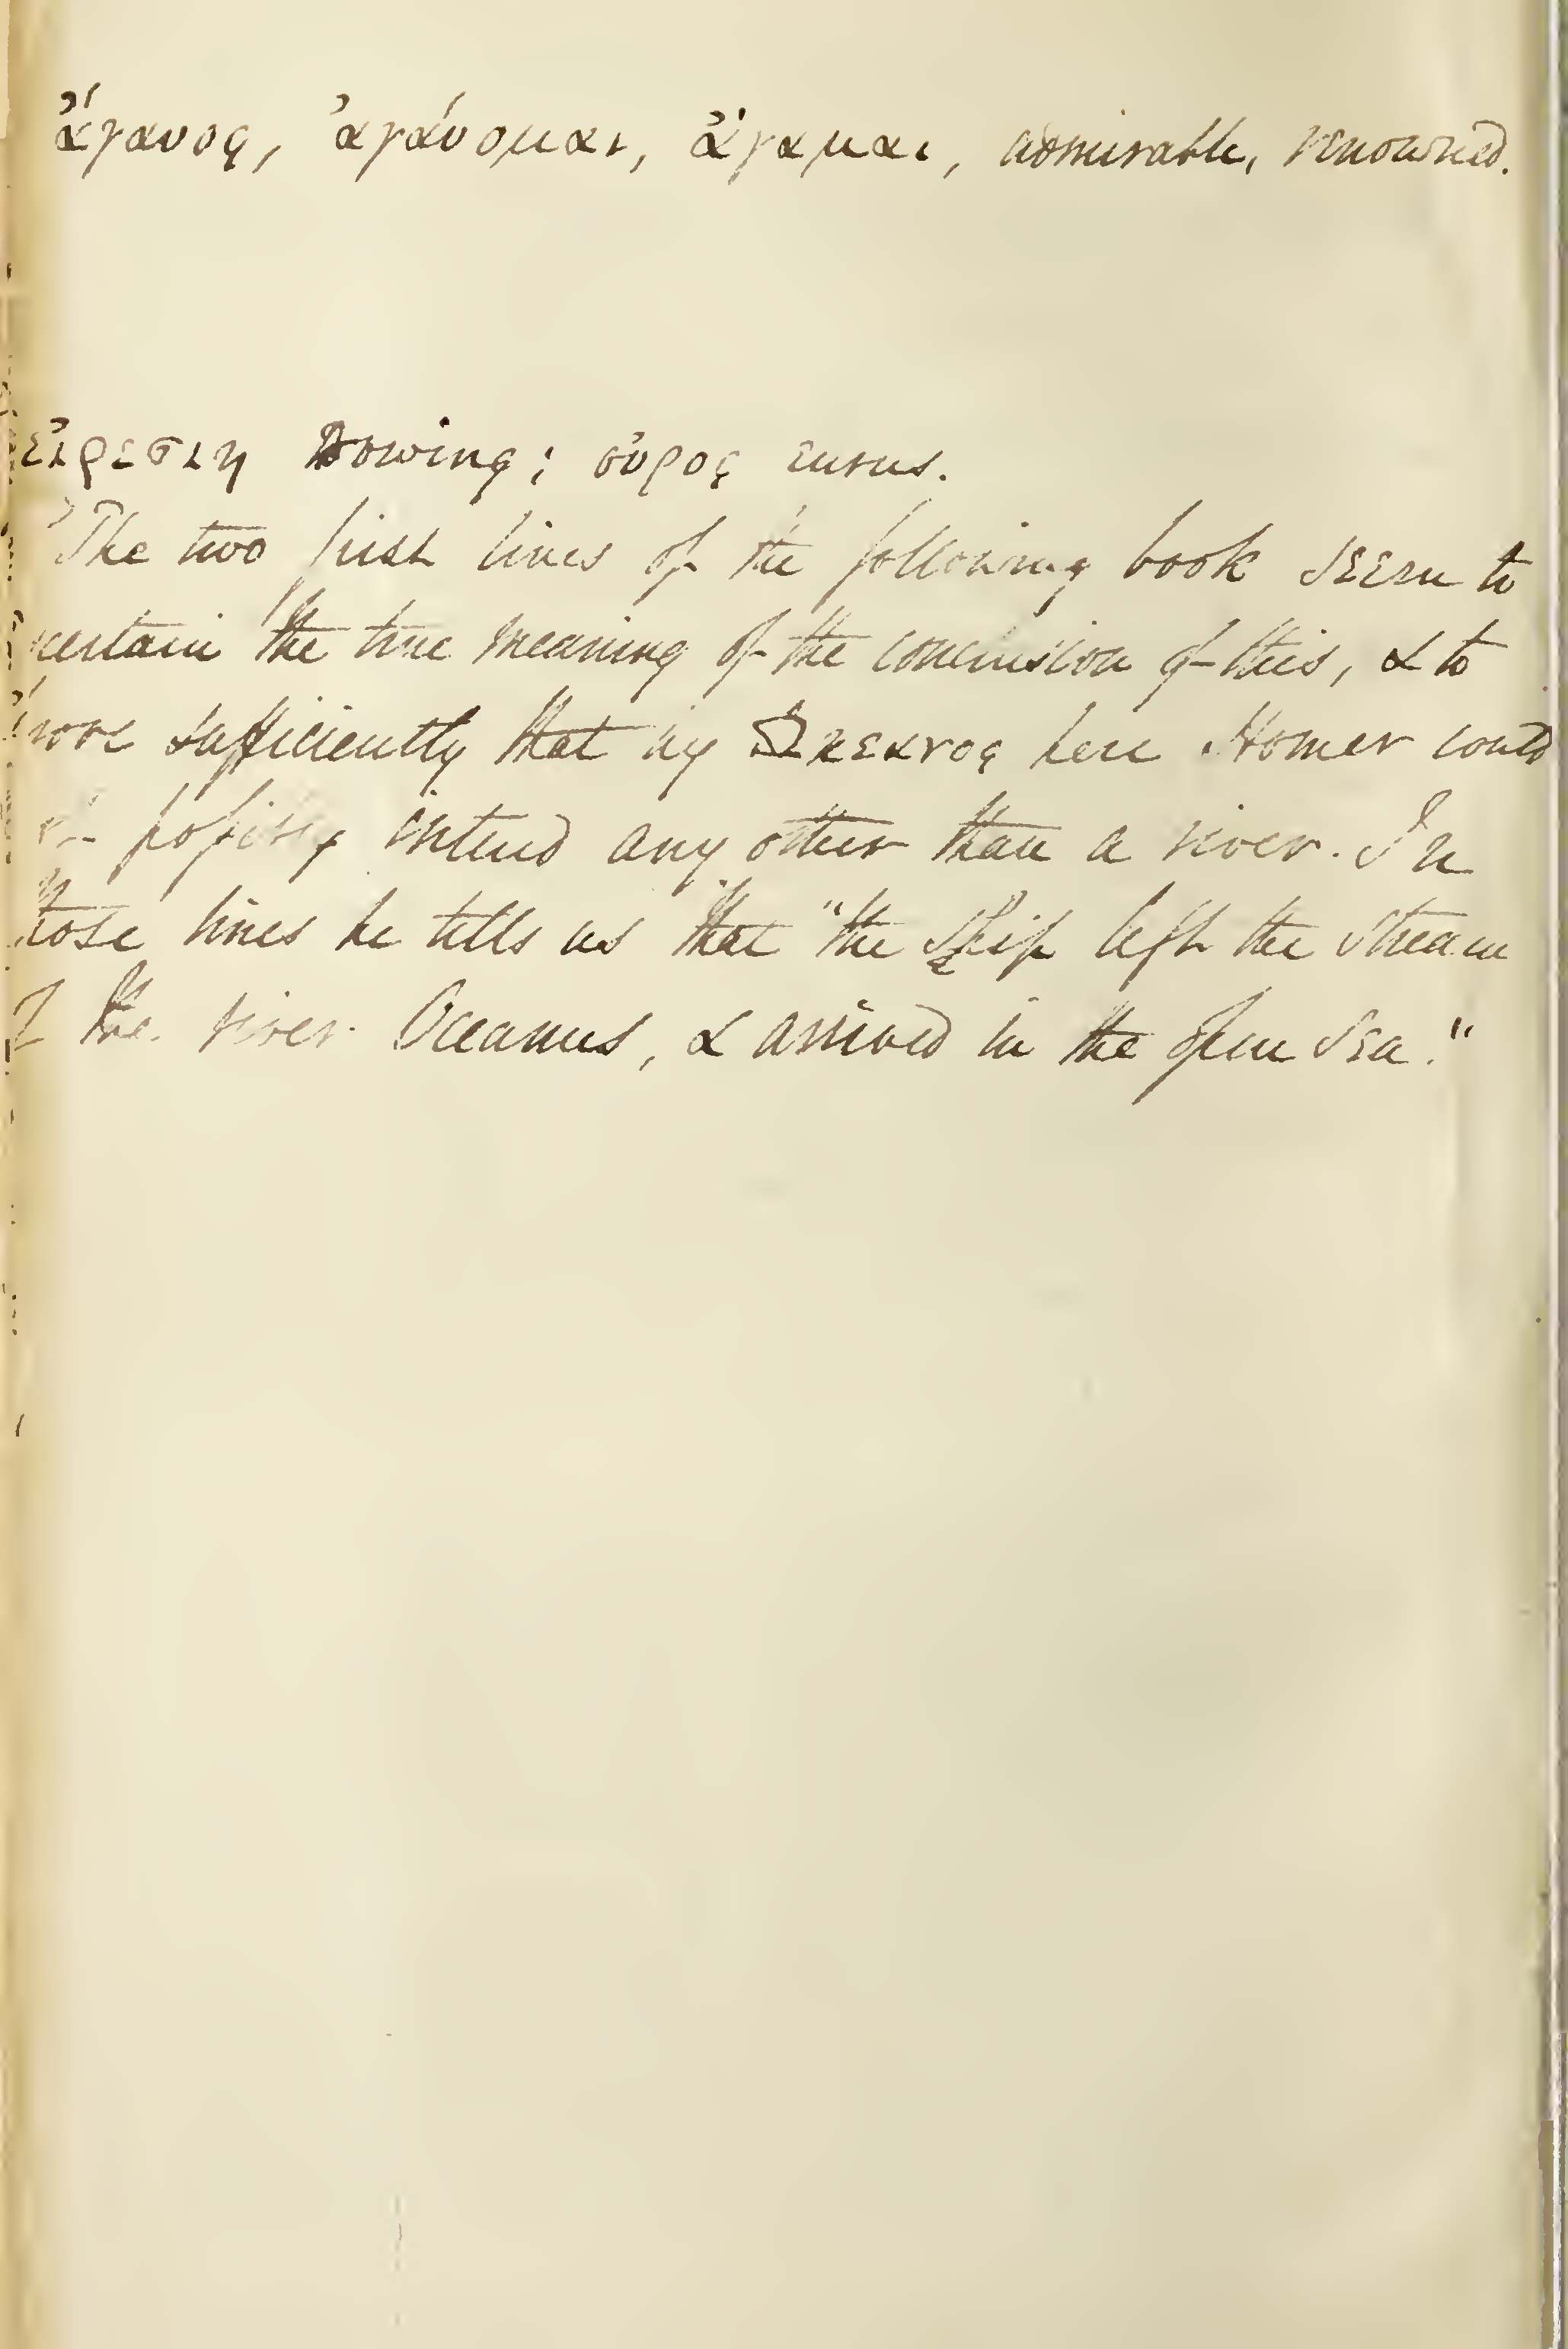 ἄγανος, ἀγάνομαι, ἄγαμαι, admirable, renowned.
εἰρεσιη Rowing; οὖρος eurus.
"The two first lines of the following book seem to
ascertain the true meaning of the conclusion of this, & to
prove sufficiently that by Ὠκεανος here Homer could
not possibly intend any other than a river. In
those lines he tells us that "the ship left the stream
of the river Oceanus, & arrived in the open sea."